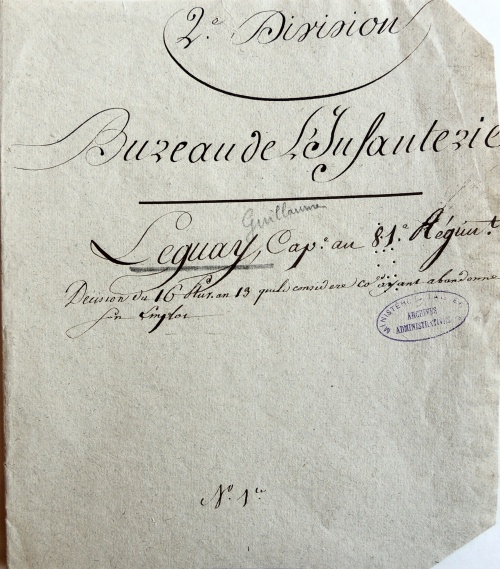 2.e Division
Bureau de L'Infanterie
Guillaume
Leguay, Cap.e au 81.e Régim.t
Décision du 16 an 13 qui le considere co ayant abandonné
son Emploi
ARCHIVES
ADMINISTRATIVES
N.o 1.er